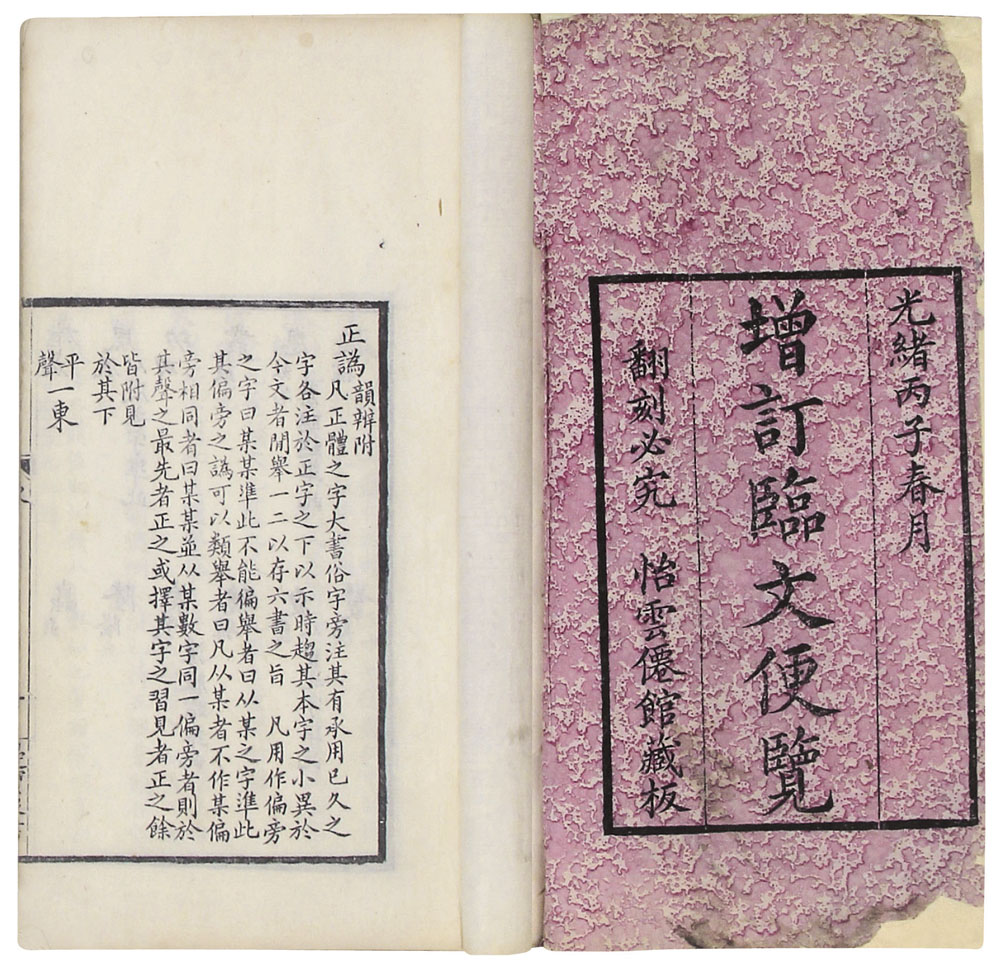 光緒丙子春月
增訂臨文便覽
翻刻必究 怡雲僊館藏板
正譌韻辨附
凡正體之字大書俗字旁注其有承用已久之
字各注於正字之下以示時趨其本字之小異於
今文者閒舉一二以存六書之旨 凡用作偏旁
之字曰某某準此不能徧舉者曰从某之字準此
其偏旁之譌可以類舉者曰凡从某者不作某偏
旁相同者曰某某並从某數字同一偏旁者則於
其聲之最先者正之或擇其字之習見者正之餘
皆附見
於其下
平
聲
一東